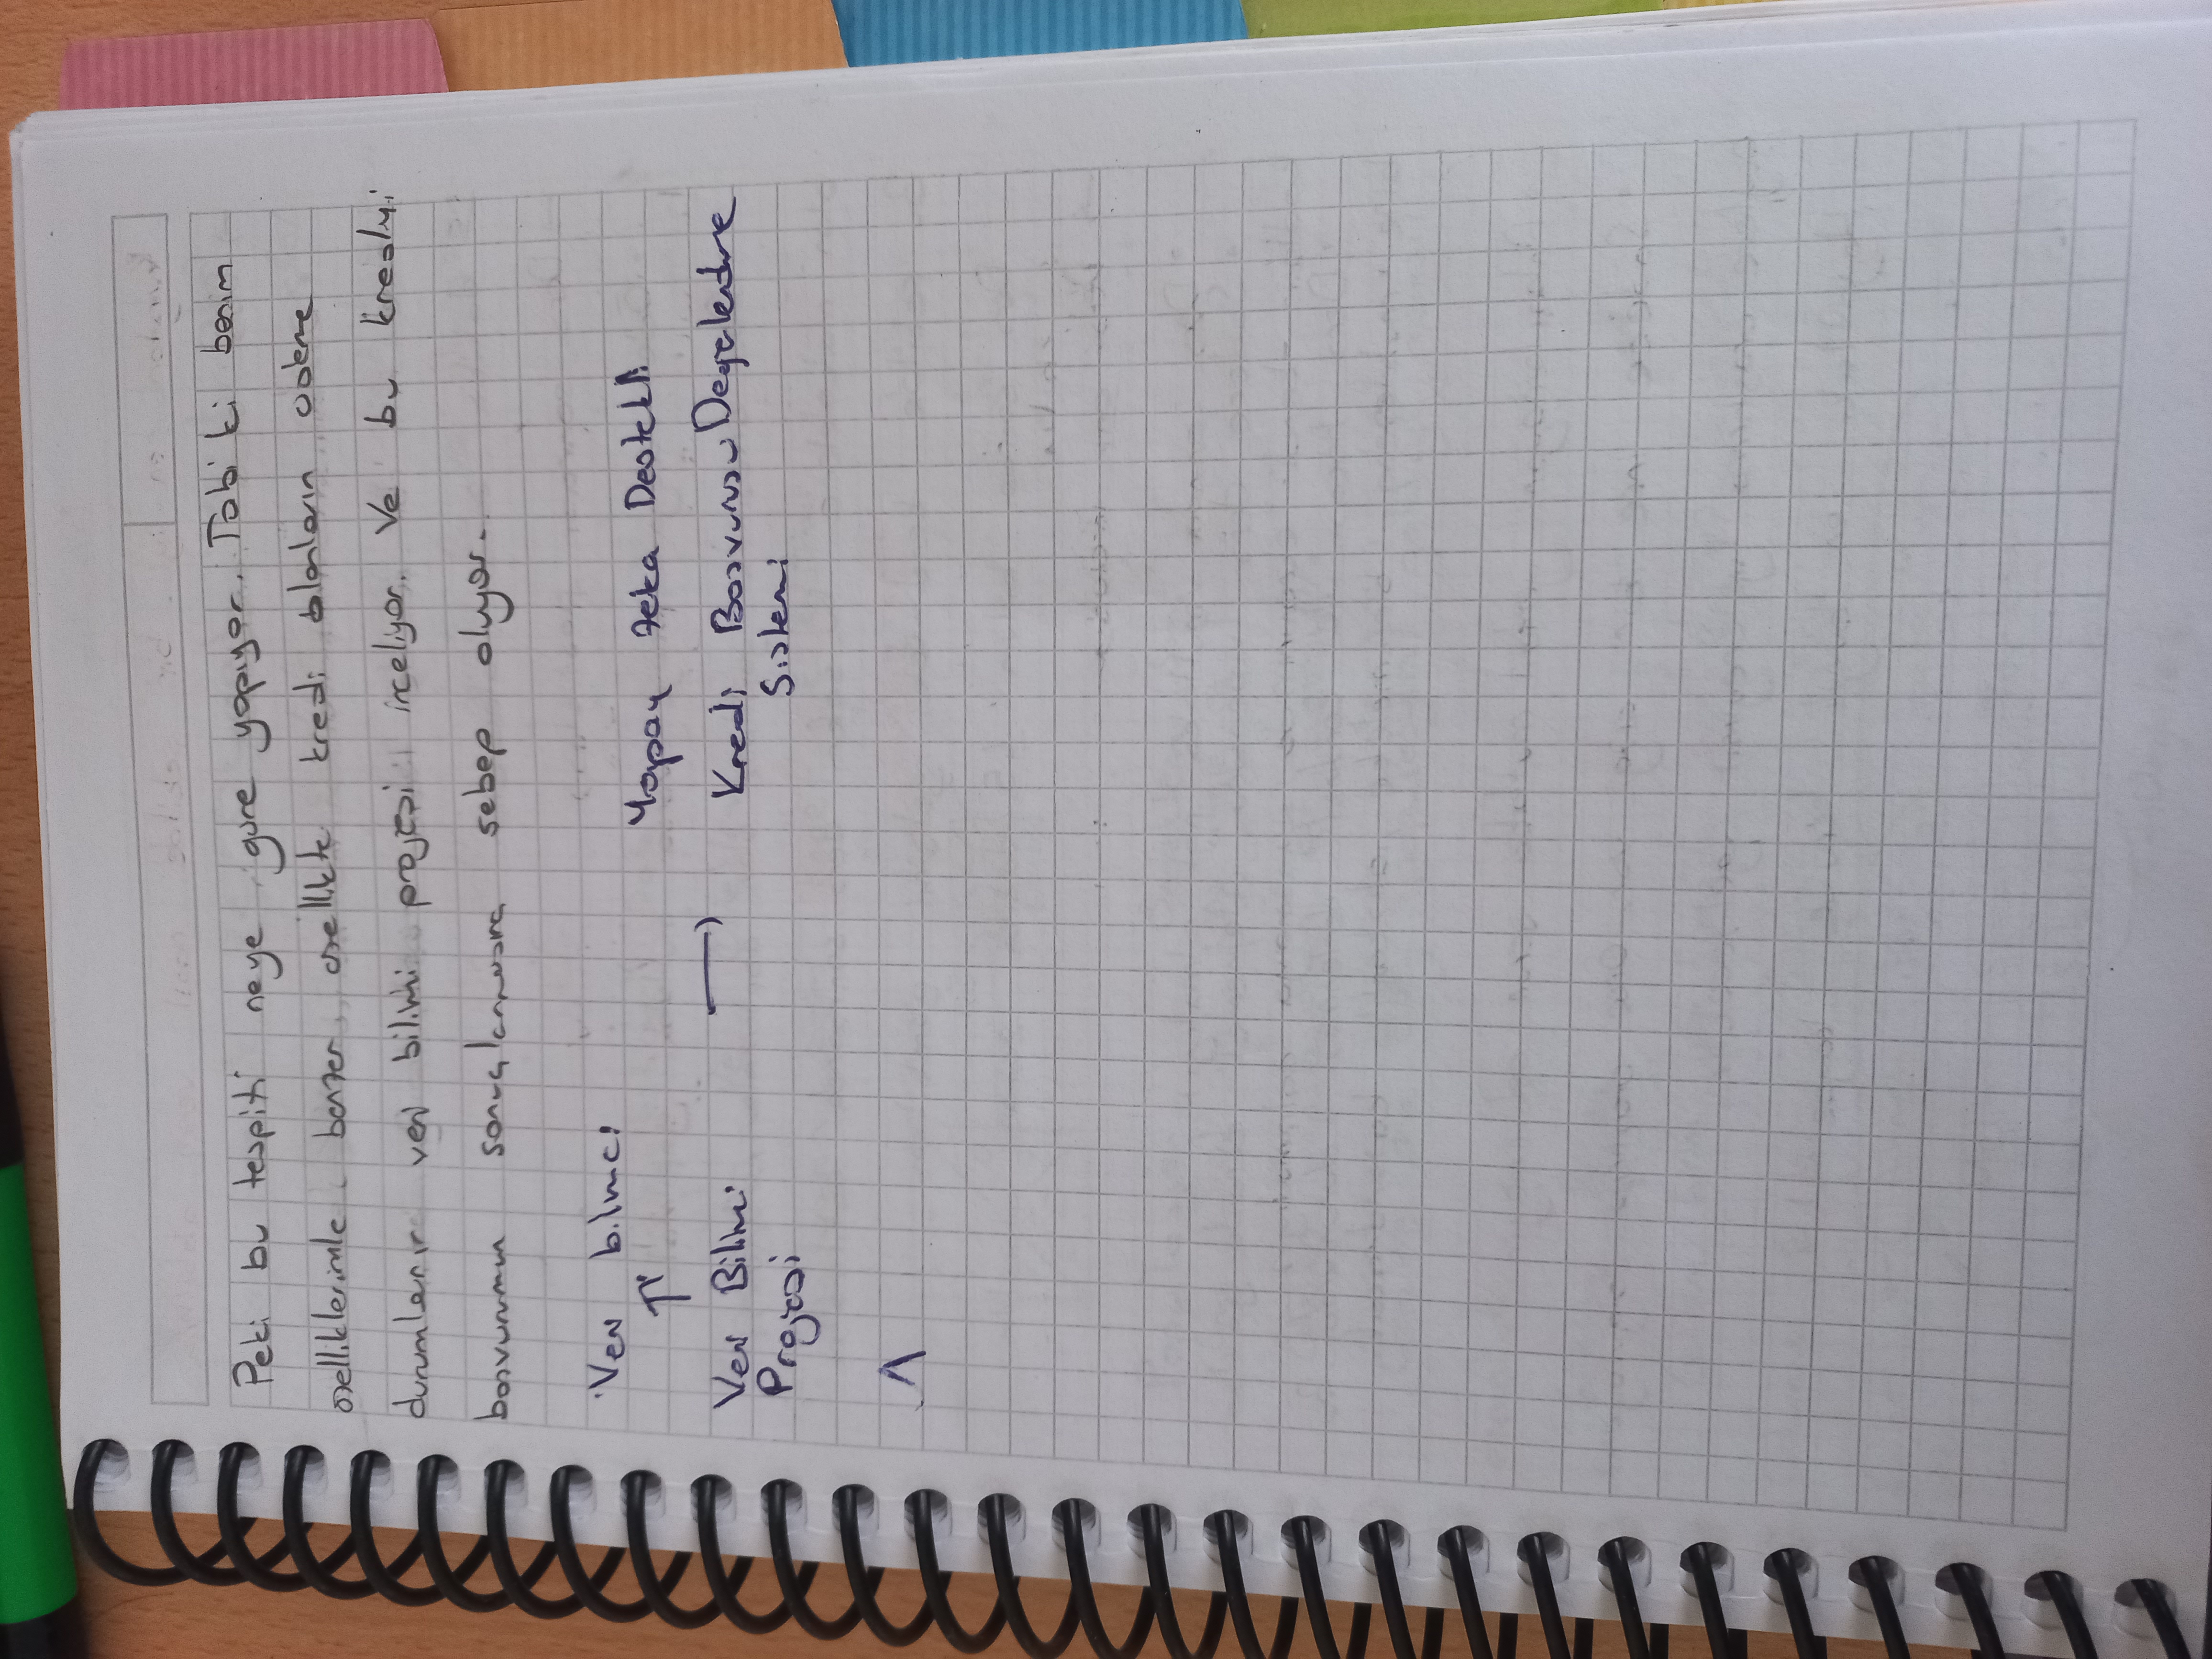 Peki bu tespiti neye göre yapıyor. Tabi ki benim
özelliklerimle benzer özellikte kredi alanların ödeme
durumlarını veri bilimi projesi inceliyor. Ve bu krediyi
başvurumun sonuçlanmasına sebep oluyor.
Veri bilimci
↑
Yapay Zeka Destekli
Veri Bilimi → Kredi Başvurusu Değerlendirme
Projesi Sistemi